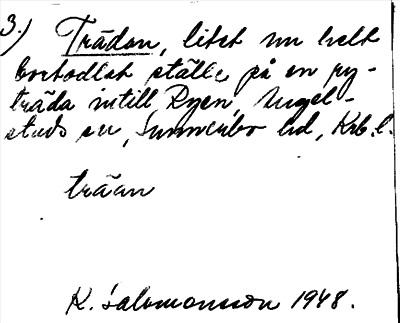 3.) Trädan, litet nu helt
bortodlat ställe på en ny-
träda intill Ryen, Angel-
stads sn, Sunnerbo hd, Krb. l.
träan
K. Salomonsson 1948.